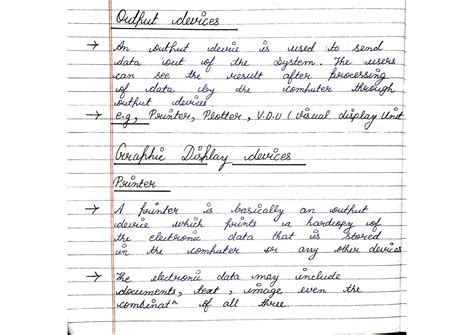 Output devices
→ An output device is used to send
data out of the system. The users
can see the result after processing
of data by the computer through
output devices
→ e.g, Printer, Plotter, V.D.U (Visual display Unit
Graphic Display devices
Printer
→ A printer is basically an output
device which prints a hardcopy of
the electronic data that is stored
in the computer or any other devices
→ The electronic data may include
documents, text, image even the
combinatⁿ of all three.